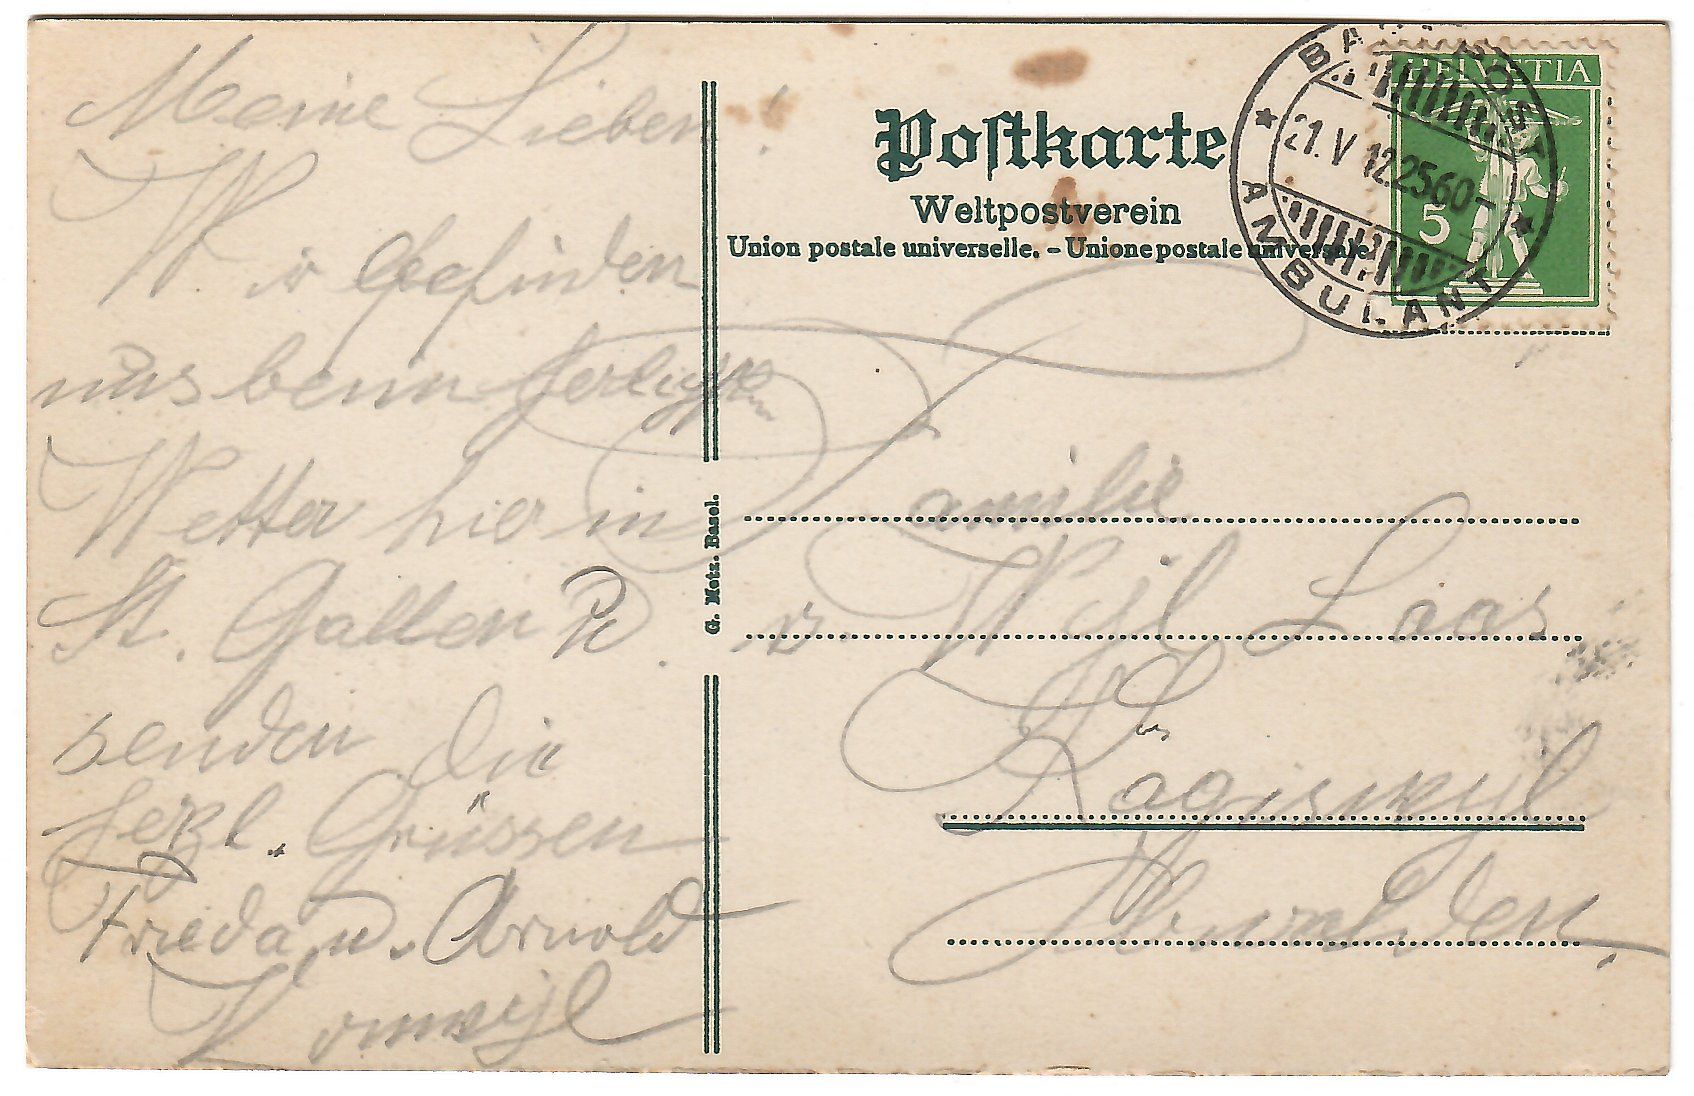 Meine Lieben!
Wir befinden
uns beim
Wetter hier in
St. Gallen u.
senden die
herzl. Grüssen
Frieda u. Arnold
Postkarte
Weltpostverein
Union postale universelle. – Unione postale universale
G. Metz. Basel.
HELVETIA
5
BAHNPOST
21. V 12.2560–
AMBULANT
Familie
v. Wyl Laas
Kägiswyl
Obwalden